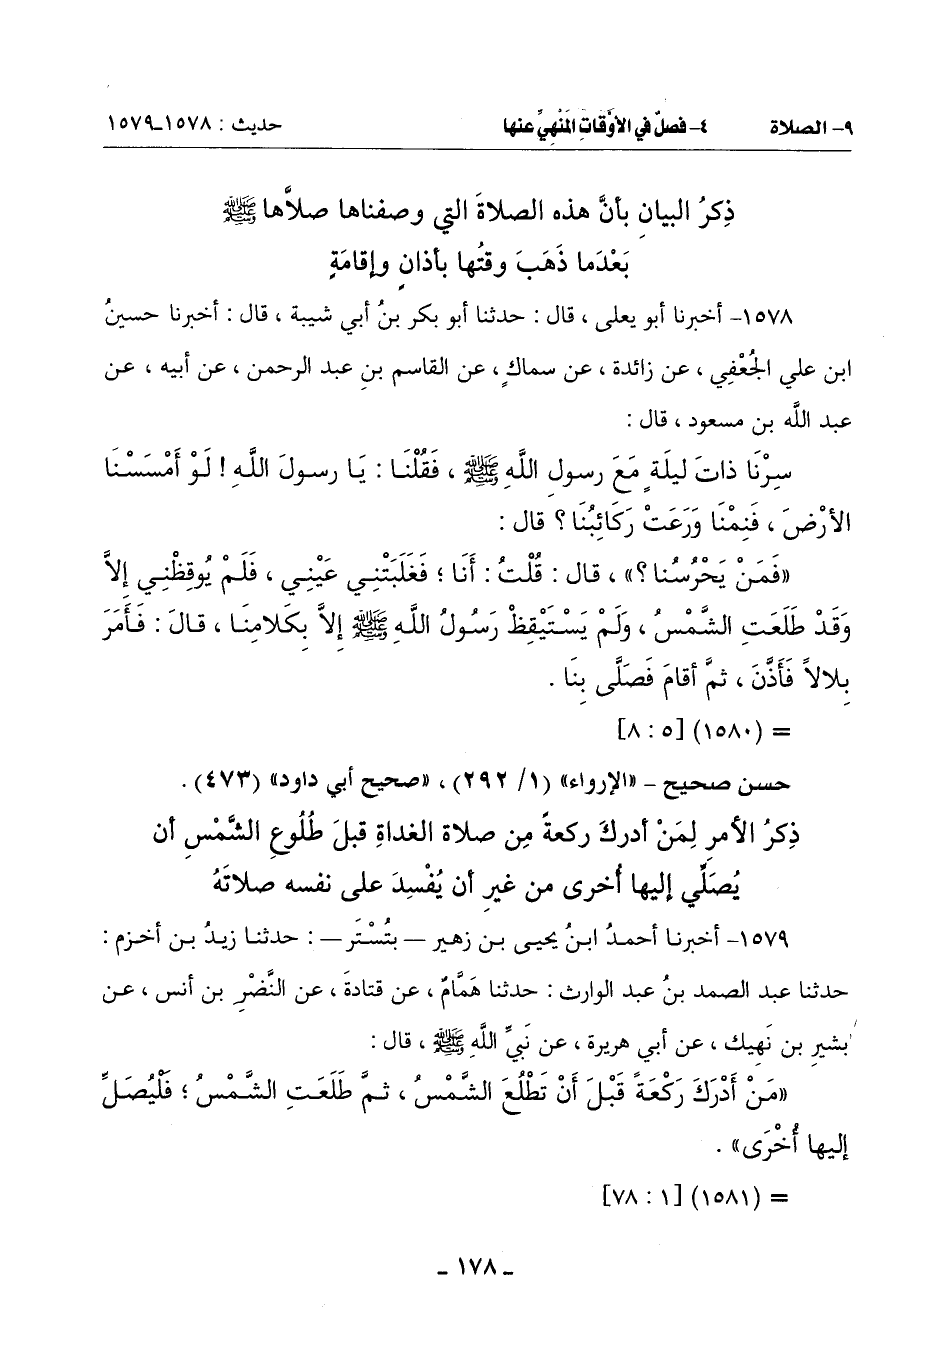 ٩- الصلاة ٤- فصلٌ في الأوْقَاتِ المَنْهِيِّ عنها حديث : ١٥٧٨-١٥٧٩
ذِكرُ البيانِ بأنَّ هذه الصلاةَ التي وصفناها صلاَّها ﷺ
بَعْدَما ذَهَبَ وقتُها بأذانٍ وإقامَةٍ
١٥٧٨- أخبرنا أبو يعلى ، قال : حدثنا أبو بكر بنُ أبي شيبة ، قال : أخبرنا حسينُ
ابن علي الجُعْفِي ، عن زائدة ، عن سماكٍ ، عن القاسم بنِ عبد الرحمن ، عن أبيه ، عن
عبد اللَّه بن مسعود ، قال :
سِرْنَا ذاتَ ليلَةٍ مَعَ رسولِ اللَّهِ ﷺ ، فَقُلْنَا : يَا رسولَ اللَّهِ ! لَوْ أَمْسَسْنَا
الأرْضَ ، فَنِمْنَا وَرَعَتْ رَكَائِبُنَا ؟ قال :
«فَمَنْ يَحْرُسُنا ؟» ، قال : قُلْتُ : أَنَا ؛ فَغَلَبَتْنِي عَيْنِي ، فَلَمْ يُوقِظْنِي إلاَّ
وَقَدْ طَلَعَتِ الشَّمْسُ ، ولَمْ يَسْتَيقِظْ رَسُولُ اللَّهِ ﷺ إلاَّ بِكَلامِنَا ، قالَ : فَأَمَرَ
بِلالاً فَأَذَّنَ ، ثمَّ أقامَ فَصَلَّى بِنَا .
= (١٥٨٠) [٥ : ٨]
حسن صحيح - «الإرواء» (١/ ٢٩٢) ، «صحيح أبي داود» (٤٧٣) .
ذِكرُ الأمرِ لِمَنْ أدركَ ركعةً مِن صلاة الغداةِ قبلَ طُلُوعِ الشَّمْسِ أن
يُصَلِّي إليها أُخرى من غيرِ أن يُفْسِدَ على نفسه صلاتَهُ
١٥٧٩- أخبرنا أحمدُ ابنُ يحيى بن زهير – بتُسْتَر – : حدثنا زيدُ بن أخزم :
حدثنا عبد الصمد بنُ عبد الوارث : حدثنا هَمَّامٌ ، عن قتادةَ ، عن النَّضْرِ بن أنس ، عن
بشيرِ بن نَهِيك ، عن أبي هريرة ، عن نَبيِّ اللَّهِ ﷺ ، قال :
«مَنْ أَدْرَكَ رَكْعَةً قَبْلَ أَنْ تَطْلُعَ الشَّمْسُ ، ثمَّ طَلَعَتِ الشَّمْسُ ؛ فَلْيُصَلِّ
إليها أُخْرَى» .
= (١٥٨١) [١ : ٧٨]
- ١٧٨ -